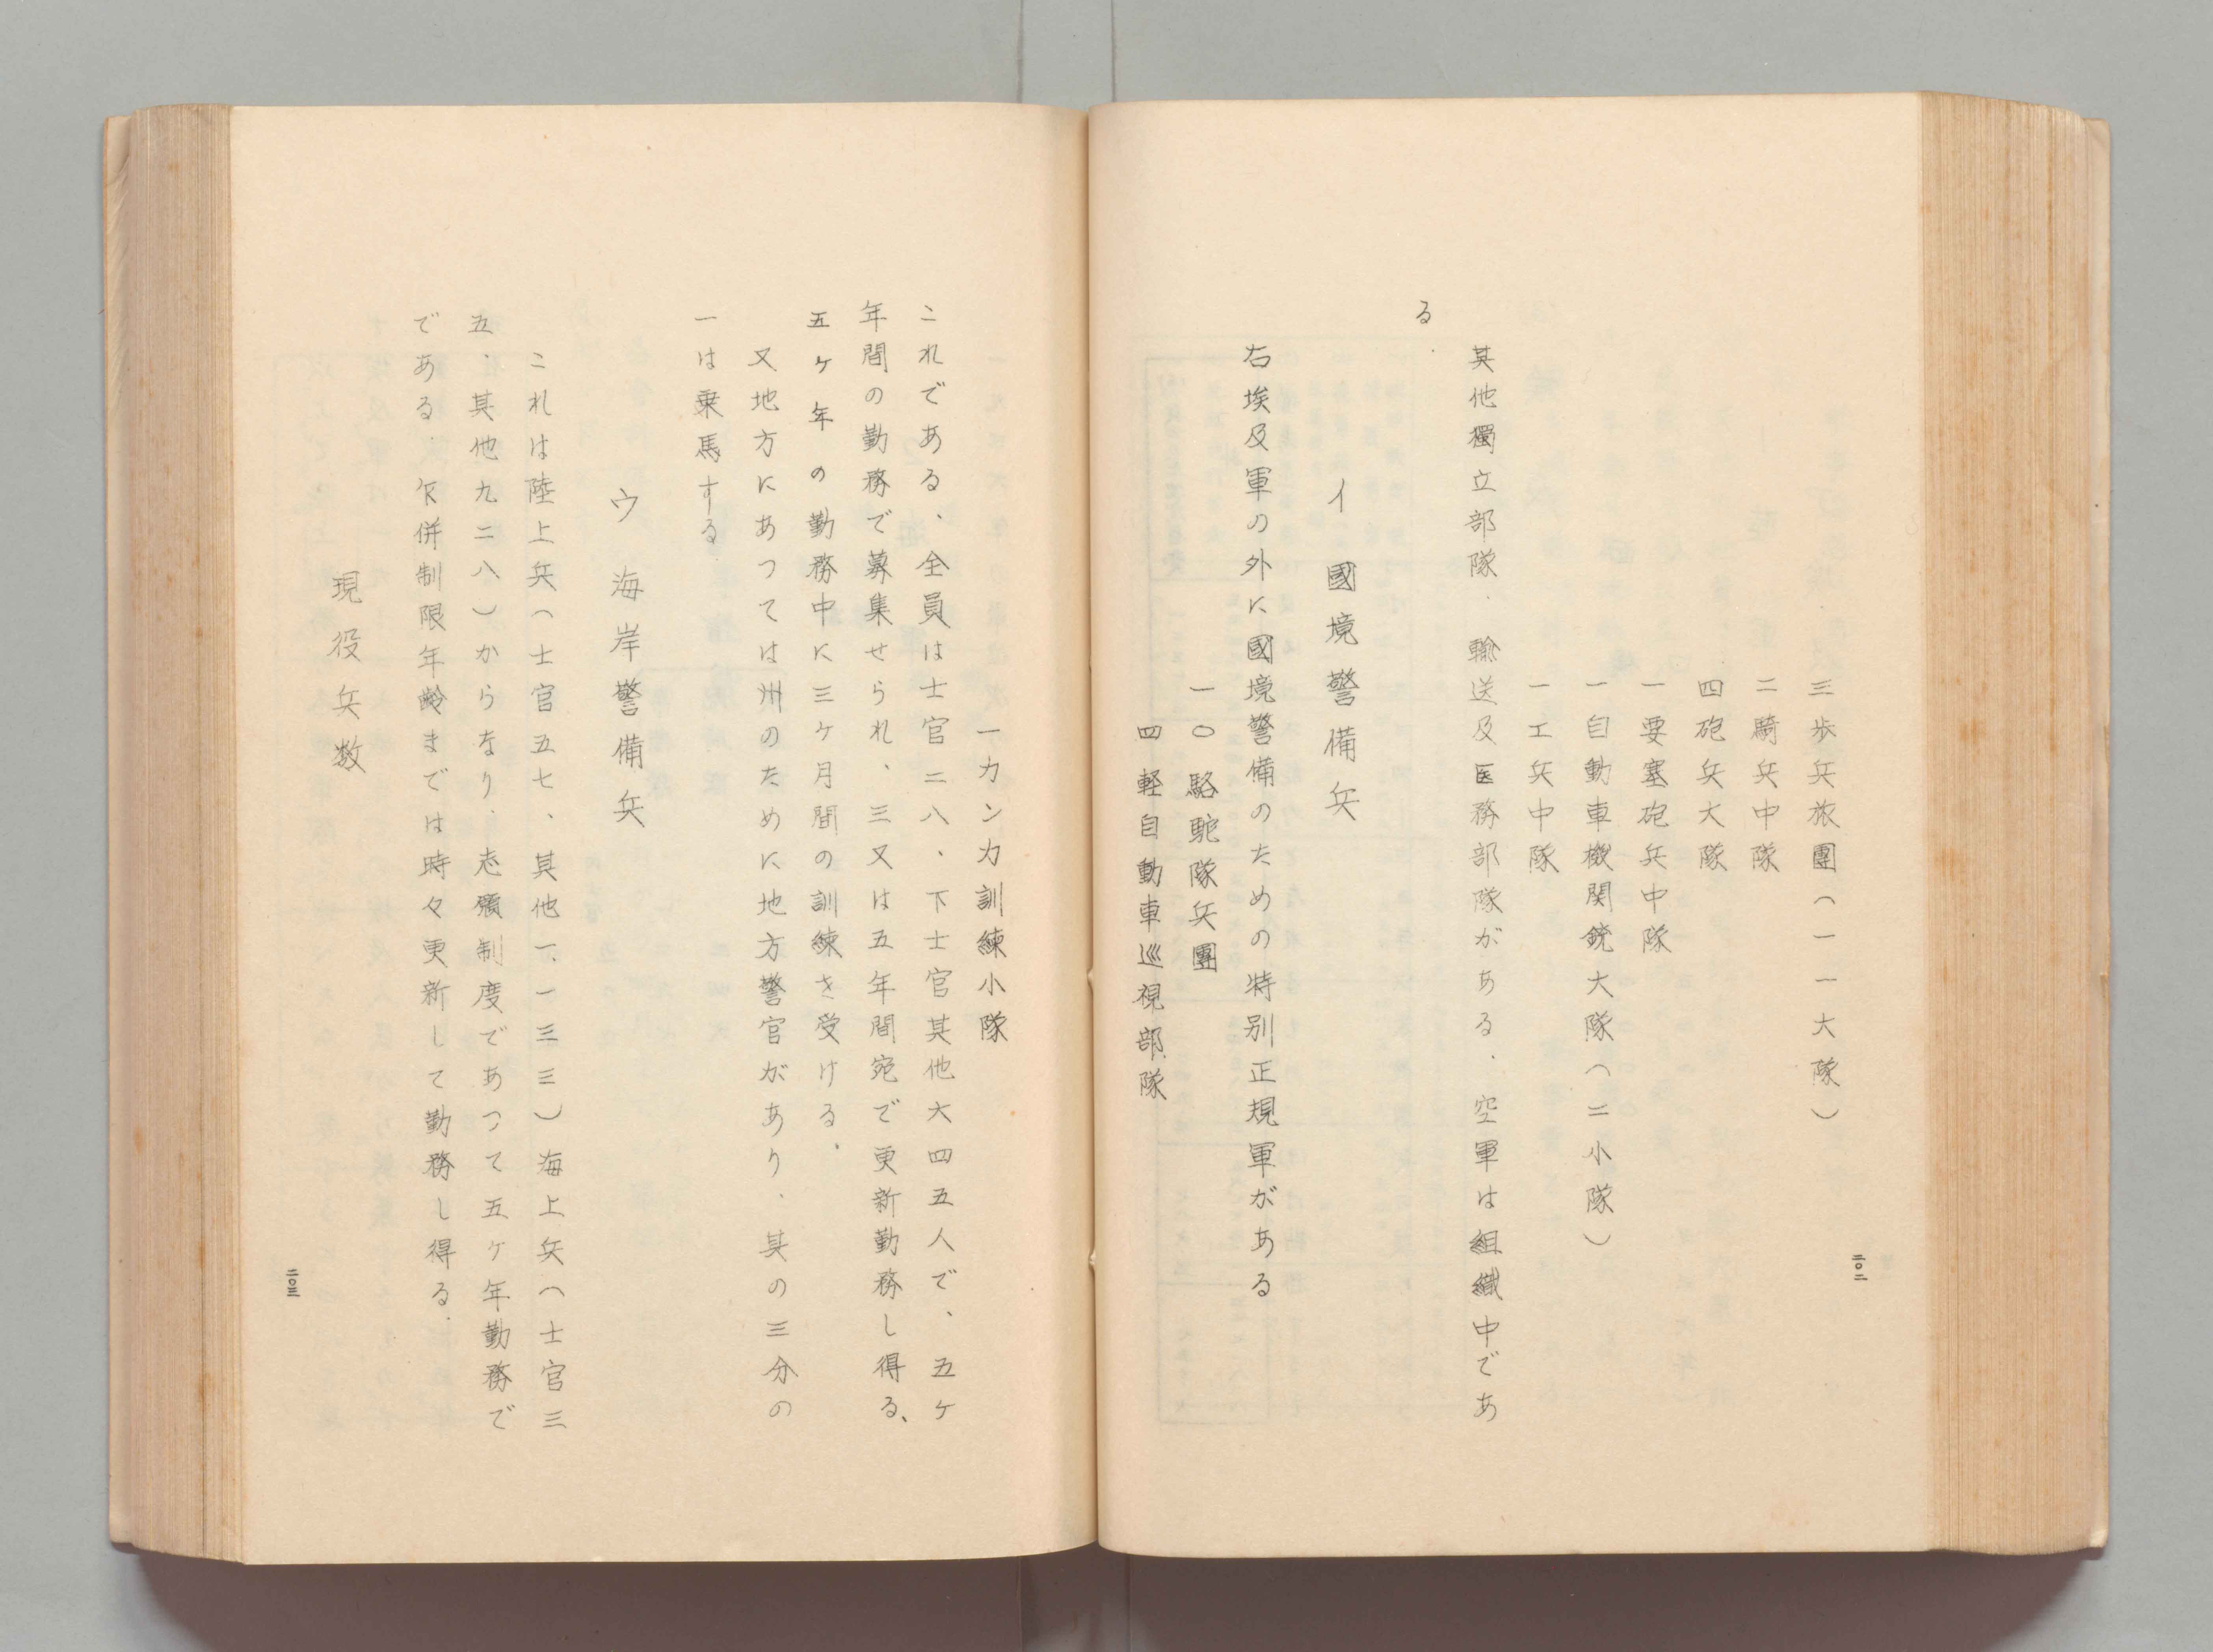 三歩兵旅團(一一大隊)
二騎兵中隊
四砲兵大隊
一要塞砲兵中隊
一自動車機関銃大隊(二小隊)
一工兵中隊
其他獨立部隊.輸送及医務部隊がある.空軍は組織中であ
る.
イ 國境警備兵
右埃及軍の外に國境警備のための特別正規軍がある
一〇駱駝隊兵團
四軽自動車巡視部隊
二〇二
一カンカ訓練小隊
これである、全員は士官二八、下士官其他六四五人で、五ヶ
年間の勤務で募集せられ、三又は五年間宛で更新勤務し得る、
五ヶ年の勤務中に三ヶ月間の訓練を受ける、
又地方にあつては州のために地方警官があり、其の三分の
一は乗馬する.
ウ 海岸警備兵
これは陸上兵(士官五七、其他一、一三三)海上兵(士官三
五、其他九二八)からなり.志願制度であつて五ヶ年勤務で
である.併制限年齢までは時々更新して勤務し得る.
現役兵数
二〇三